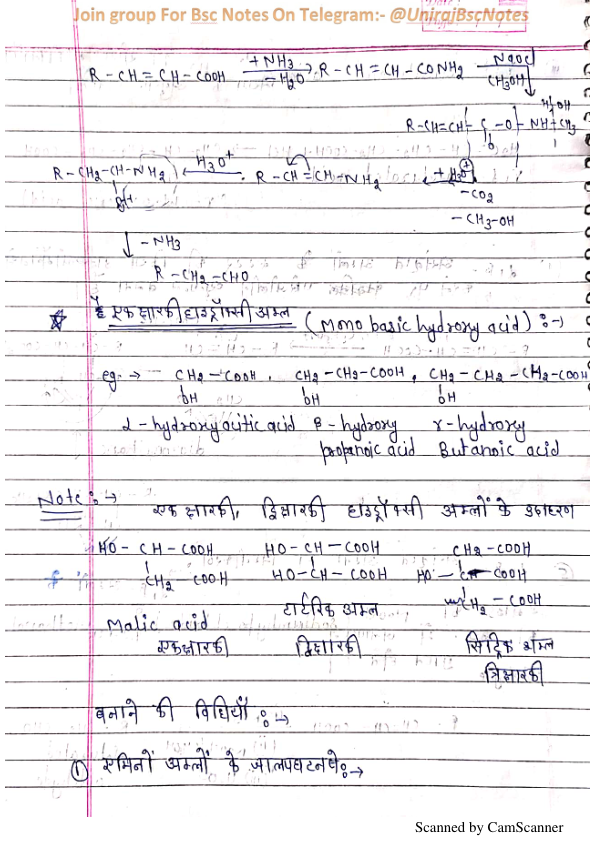 Join group For Bsc Notes On Telegram:- @UnirajBscNotes
R-CH=CH-COOH +NH3 -H2O → R-CH=CH-CONH2 NaOCl CH3OH
H-OH
R-CH=CH-C-O-NH-CH3
O
R-CH2-CH-NH2 ← H3O+ R-CH=CH-NH2 ← +H3O+
-CO2
-CH3-OH
↓ -NH3
R-CH2-CHO
☆ एकक्षारकी हाइड्रॉक्सी अम्ल (Mono basic hydroxy acid) :-→
eg. → CH2-COOH, CH2-CH2-COOH, CH2-CH2-CH2-COOH
OH OH OH
α-hydroxy acitic acid β-hydroxy γ-hydroxy
propanoic acid Butanoic acid
Note:-→ एकक्षारकी, द्विक्षारकी हाइड्रॉक्सी अम्लों के उदाहरण
HO-CH-COOH HO-CH-COOH CH2-COOH
CH2 COOH HO-CH-COOH HO-C-COOH
CH2-COOH
टार्टरिक अम्ल
Malic acid
एकक्षारकी द्विक्षारकी सिट्रिक अम्ल
त्रिक्षारकी
बनाने की विधियाँ :-→
① एमिनों अम्लों के जालपघटनपे:-→
Scanned by CamScanner